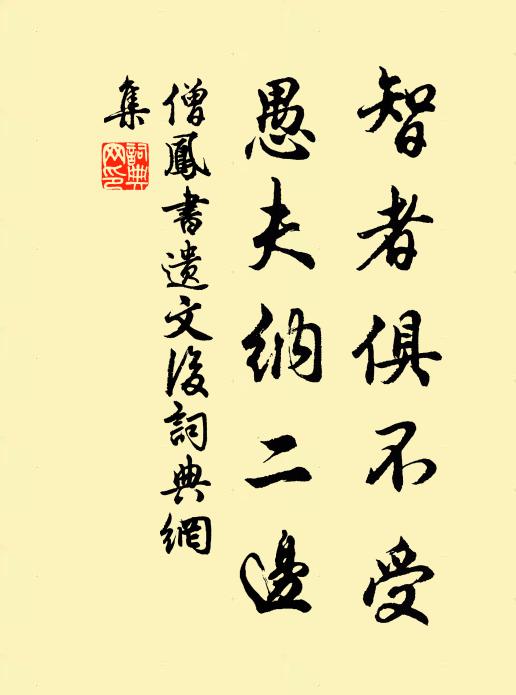 智者俱不受
愚夫納二邊
僧鳳書遺文後詞典網
集
詞典
网印